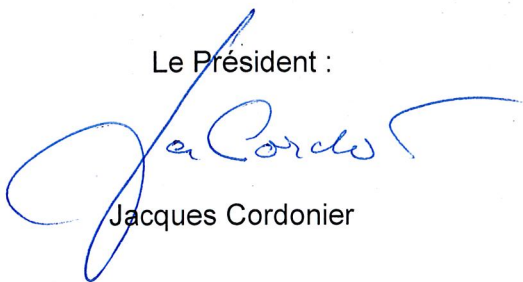 Le Président :
Jacques Cordonier